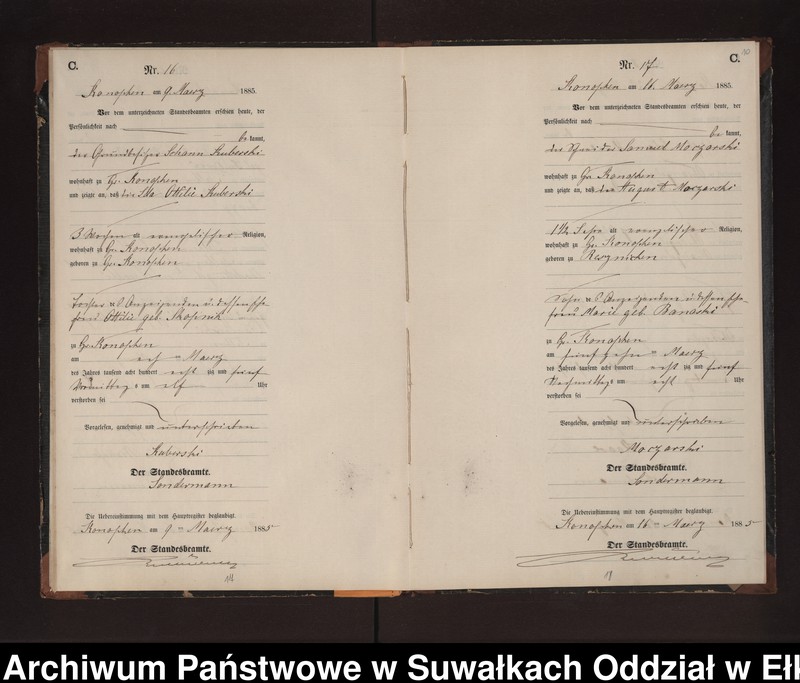 C.
Nr. 16
Konopken am 9. Maerz 1885.
Vor dem unterzeichneten Standesbeamten erschien heute, der
Persönlichkeit nach
be kannt,
der Grundbesitzer Johann Kuberski
wohnhaft zu Gr. Konopken
und zeigte an, daß die Ida Ottilie Kuberski
3 Wochen alt evangelischer Religion,
wohnhaft zu Gr. Konopken
geboren zu Gr. Konopken
Tochter des Anzeigenden u. dessen Ehe-
frau Ottilie geb. Skopnik
zu Gr. Konopken
am acht Maerz
des Jahres tausend acht hundert acht zig und fünf
Vormittags um elf Uhr
verstorben sei
Vorgelesen, genehmigt und unterschrieben
Kuberski
Der Standesbeamte.
Sondermann
Die Uebereinstimmung mit dem Hauptregister beglaubigt.
Konopken am 9 Maerz 1885
Der Standesbeamte.
Sondermann
C.
Nr. 17
Konopken am 16. Maerz 1885.
Vor dem unterzeichneten Standesbeamten erschien heute, der
Persönlichkeit nach
be kannt,
der Schneider Samuel Moczarski
wohnhaft zu Gr. Konopken
und zeigte an, daß der August Moczarski
1 1/2 Jahre alt evangelischer Religion,
wohnhaft zu Gr. Konopken
geboren zu
Sohn des Anzeigenden u. dessen Ehe-
frau Marie geb. Banaski
zu Gr. Konopken
am fünfzehn Maerz
des Jahres tausend acht hundert acht zig und fünf
Nachmittags um acht Uhr
verstorben sei
Vorgelesen, genehmigt und unterschrieben
Moczarski
Der Standesbeamte.
Sondermann
Die Uebereinstimmung mit dem Hauptregister beglaubigt.
Konopken am 16 Maerz 1885
Der Standesbeamte.
Sondermann
Archiwum Państwowe w Suwałkach Oddział w Ełk